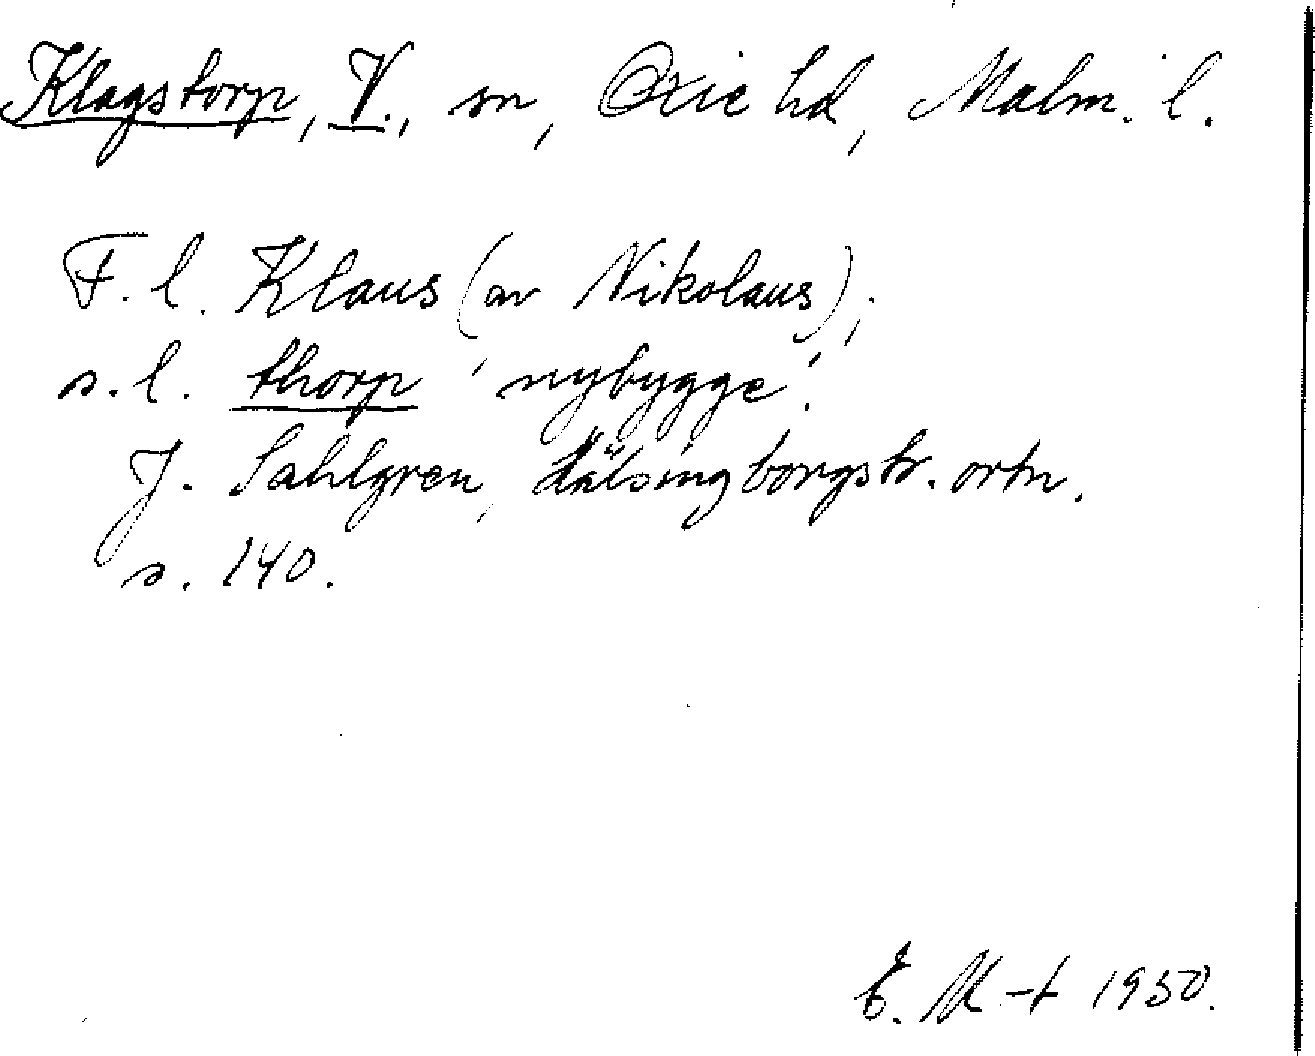 Klagstorp, V., sn, Oxie hd, Malm. l.
F. l. Klaus (av Nikolaus);
s. l. thorp 'nybygge'.
J. Sahlgren, Hälsingborgstr. ortn.
s. 140.
E. M-t 1950.